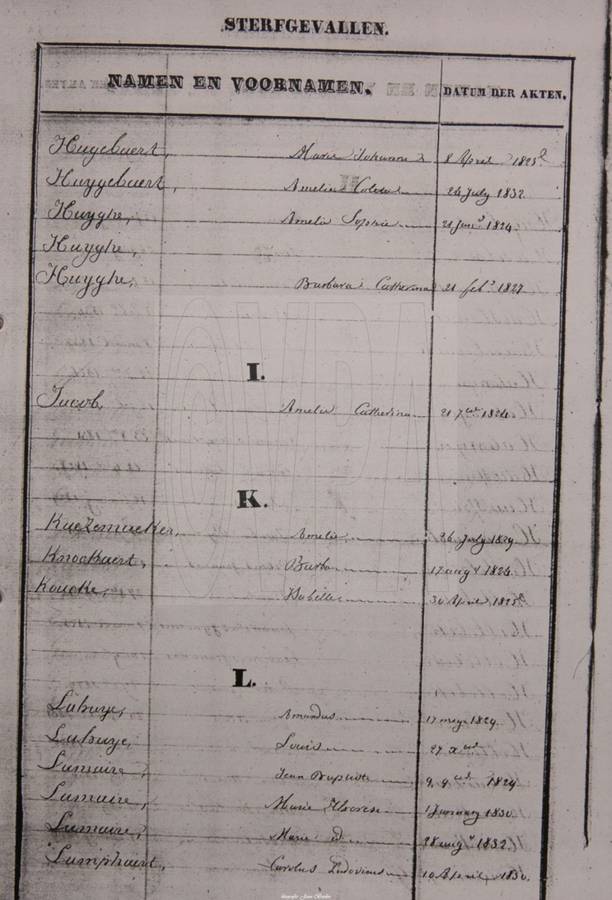 STERFGEVALLEN.
NAMEN EN VOORNAMEN. DATUM DER AKTEN.
Hugebaert, Marie Johanna 8 April 1825
Huygebaert, Amelie Coleta 24 July 1832.
Huyghe, Amelie Sophie 1824.
Huyghe,
Huyghe, Barbara Catherina 21 feb. 1827
I.
Jacob, Amelie Catherina 21 7ber 1824.
K.
Amelie 26 July 1829.
Knockaert, Barbe 17 augt 1824.
Koucke, Isabelle 30 April 1825
L.
Lahuye, Amandus 17 mey 1829.
Lahuye, Louis 27
Lamaire, Jean Baptiste 9, 9ber 1829
Lamaire, Marie Therese 1 January 1830.
Lamaire, Marie id 28 augt 1832.
Lamphaert, Carolus Ludovicus 10 April 1830.